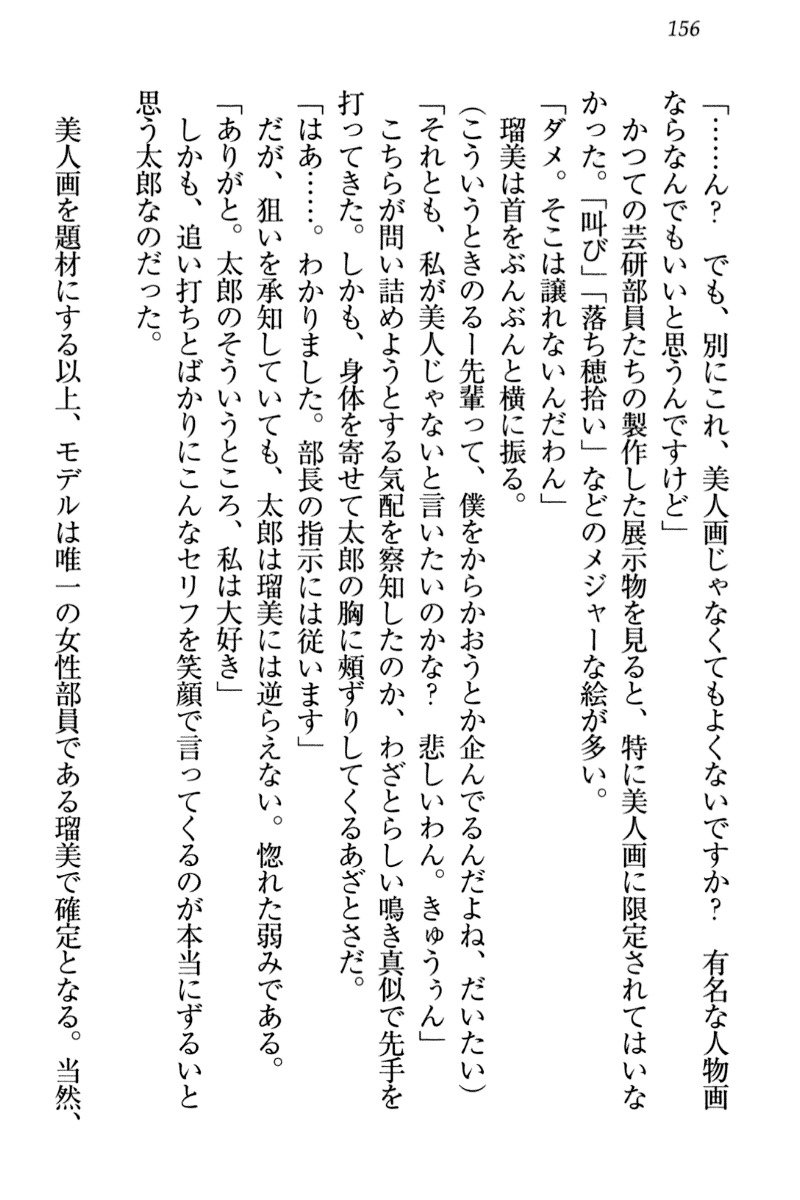 156
「……ん？　でも、別にこれ、美人画じゃなくてもよくないですか？　有名な人物画
ならなんでもいいと思うんですけど」
　かつての芸研部員たちの製作した展示物を見ると、特に美人画に限定されてはいな
かった。「叫び」「落ち穂拾い」などのメジャーな絵が多い。
「ダメ。そこは譲れないんだわん」
　瑠美は首をぶんぶんと横に振る。
（こういうときのるー先輩って、僕をからかおうとか企んでるんだよね、だいたい）
「それとも、私が美人じゃないと言いたいのかな？　悲しいわん。きゅうぅん」
　こちらが問い詰めようとする気配を察知したのか、わざとらしい鳴き真似で先手を
打ってきた。しかも、身体を寄せて太郎の胸に頬ずりしてくるあざとさだ。
「はあ……。わかりました。部長の指示には従います」
　だが、狙いを承知していても、太郎は瑠美には逆らえない。惚れた弱みである。
「ありがと。太郎のそういうところ、私は大好き」
　しかも、追い打ちとばかりにこんなセリフを笑顔で言ってくるのが本当にずるいと
思う太郎なのだった。
　美人画を題材にする以上、モデルは唯一の女性部員である瑠美で確定となる。当然、